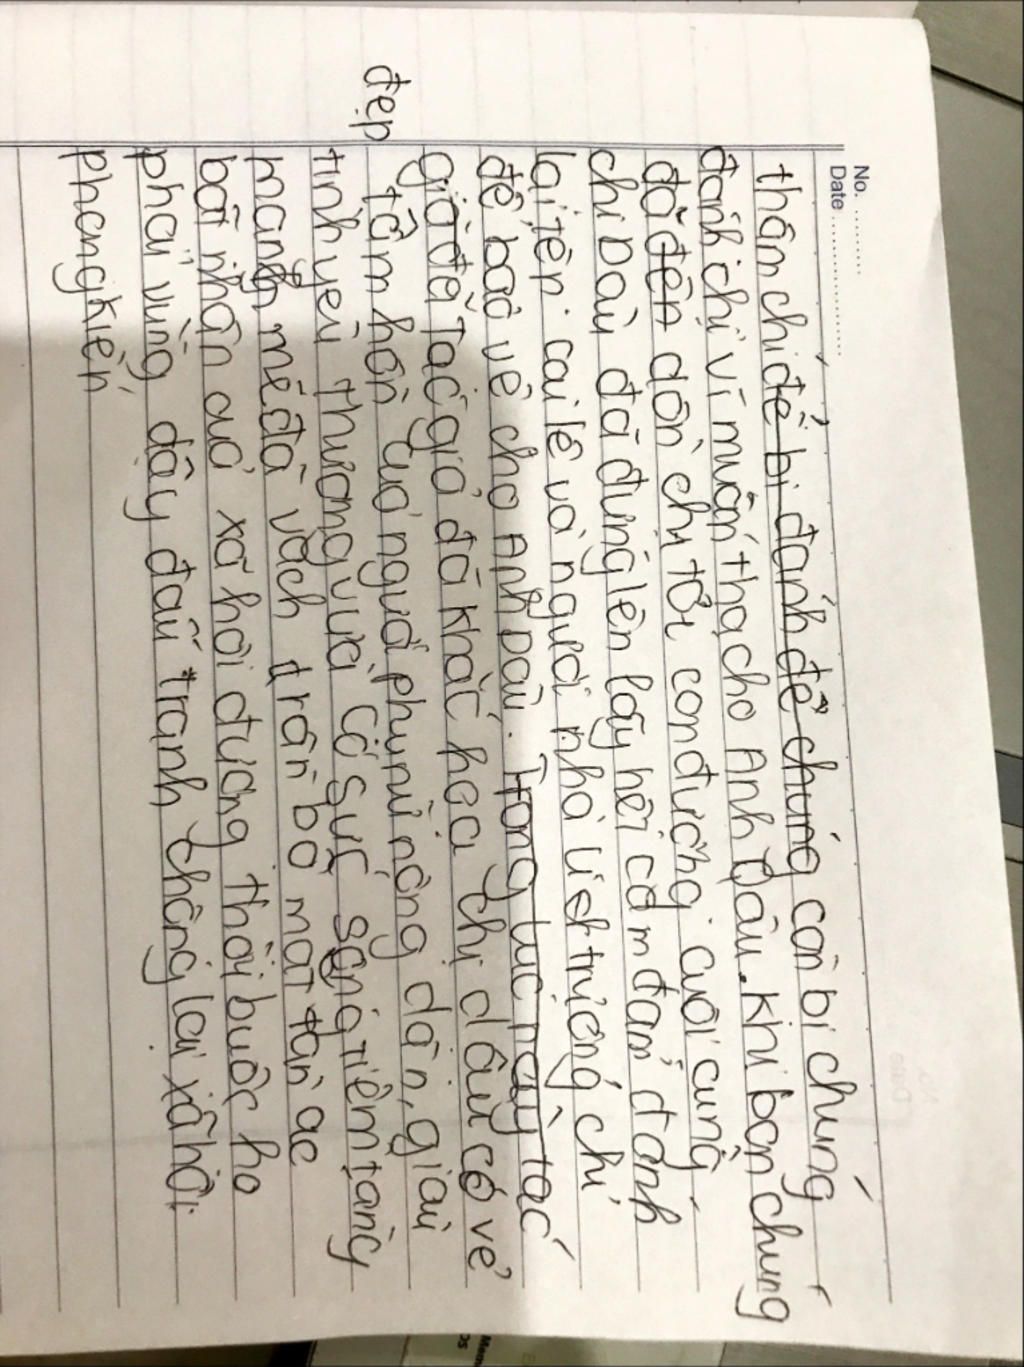 No. ...........
Date .....................
thậm chí để bị đánh để chúng còn bị chúng
đánh chị vì muốn tha cho Anh Dậu. Khi bọn chúng
đã đến dồn chị tới con đường cuối cùng
chị Dậu đã đứng lên lấy hết can đảm đánh
lại tên cai lệ và người nhà lí trưởng chỉ
để bảo vệ cho Anh Dậu. Trong lúc này tác
giả để Tác giả đã khắc họa chị dậu có vẻ
đẹp tâm hồn của người phụ nữ nông dân, giàu
tình yêu thương vừa có sức sống tiềm tàng
mạnh mẽ đã vạch trần bộ mặt tàn ác
bất nhân của xã hội đương thời buộc họ
phải vùng dậy đấu tranh chống lại xã hội
phong kiến